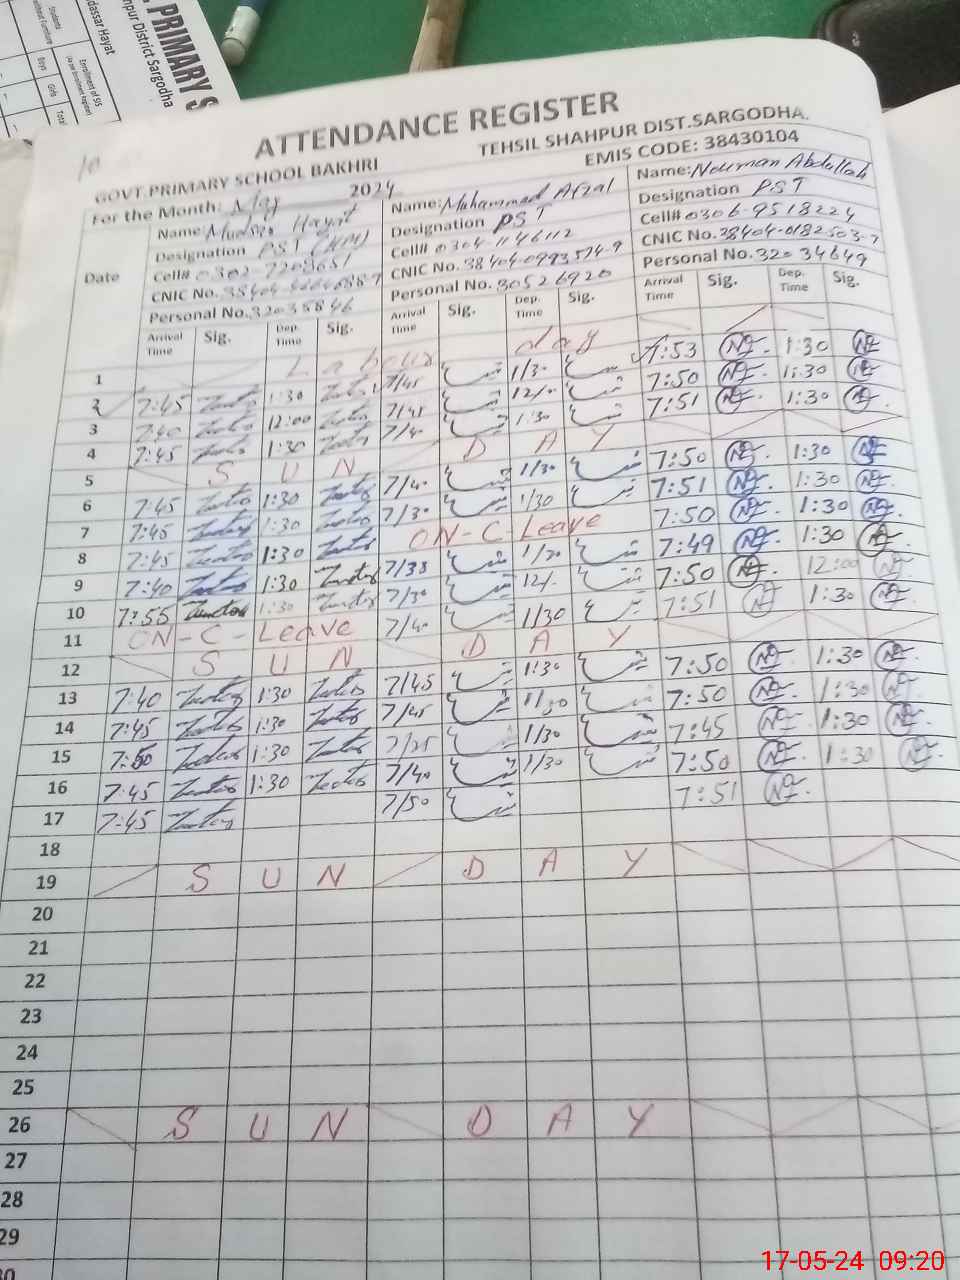 PRIMARY S
npur District Sargodha
dassar Hayat
Enrollment of SIS
Students
Boys
Girls
Total
10
ATTENDANCE REGISTER
GOVT.PRIMARY SCHOOL BAKHRI TEHSIL SHAHPUR DIST.SARGODHA.
For the Month: May 2024 EMIS CODE: 38430104
Name: Hayat Name: Muhammad Afzal Name: Nouman Abdullah
Designation PST (HM) Designation PST Designation PST
Cell# 0302-7208651 Cell# 0304-1146112 Cell# 0306-9518224
CNIC No. CNIC No. 38404-0993574-9 CNIC No. 38404-0182503-7
Personal No. 32035846 Personal No. 30526920 Personal No. 32034649
Date Arrival Time Sig. Dep. Time Sig. Arrival Time Sig. Dep. Time Sig. Arrival Time Sig. Dep. Time Sig.
1 Labour day
2 7:45 1:30 7/45 1/30 7:53 1:30
3 7:40 12:00 7/45 12/- 7:50 1:30
4 7:45 1:30 7/40 1:30 7:51 1:30
5 S U N D A Y
6 7:45 1:30 7/40 1/30 7:50 1:30
7 7:45 1:30 7/30 1/30 7:51 1:30
8 7:45 1:30 ON-C-Leave 7:50 1:30
9 7:40 1:30 7/38 1/30 7:49 1:30
10 7:55 1:30 7/30 12/- 7:50 12:00
11 ON-C-Leave 7/40 1/30 7:51 1:30
12 S U N D A Y
13 7:40 1:30 7/45 1:30 7:50 1:30
14 7:45 1:30 7/45 1/30 7:50 1:30
15 7:50 1:30 7/25 1/30 7:45 1:30
16 7:45 1:30 7/40 1/30 7:50 1:30
17 7:45 7/50 7:51
18
19 S U N D A Y
20
21
22
23
24
25
26 S U N D A Y
27
28
29
30
17-05-24 09:20